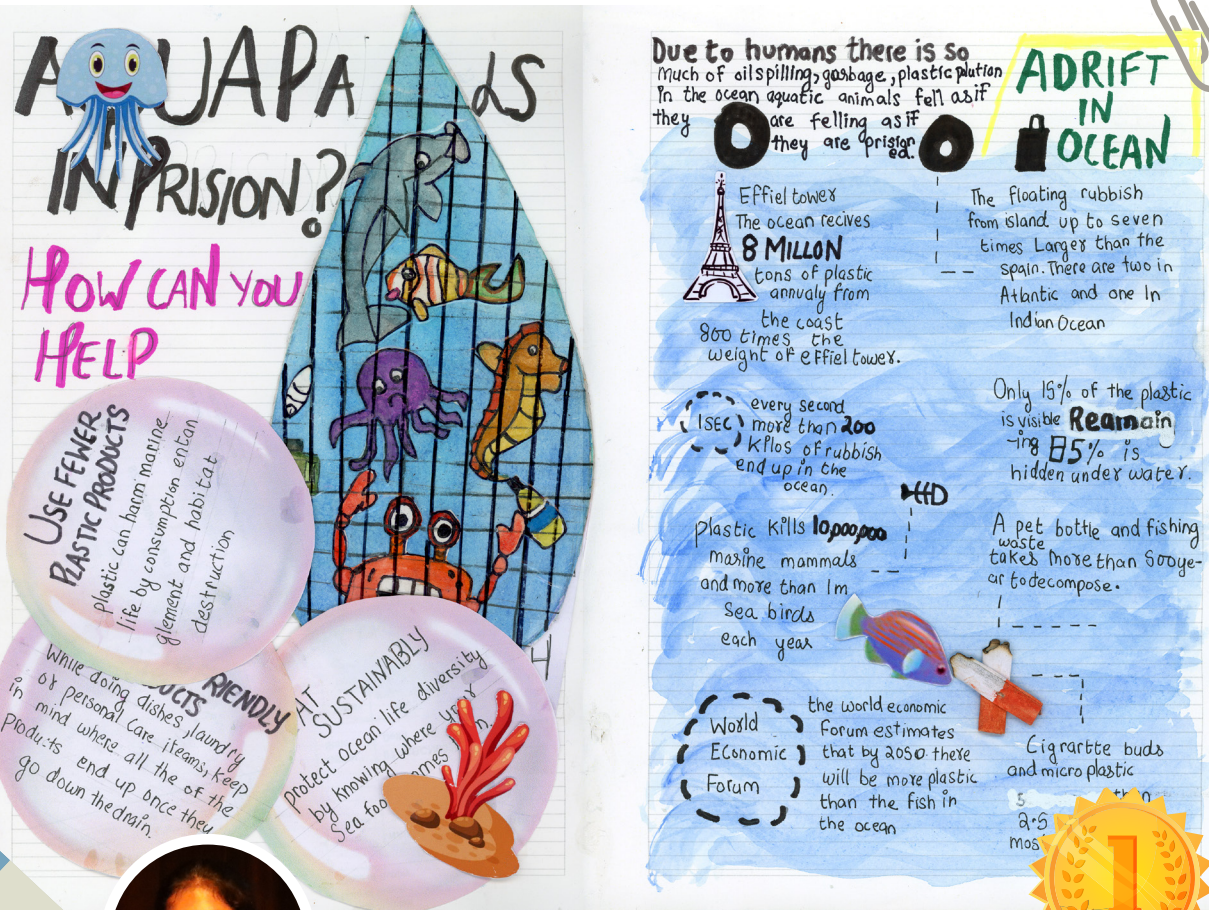 A UAPA LS
IN PRISION?
HOW CAN YOU
HELP
USE FEWER
PLASTIC PRODUCTS
plastic can harm marine
life by consumption entan
glement and habitat
destruction
RIENDLY
UCTS
While doing dishes, laundry
or personal care iteams, keep
in mind where all the of the
products end up once they
go down the drain.
AT
SUSTAINABLY
protect ocean life diversity
by knowing where your
Sea foo omes
Due to humans there is so
Much of oil spilling, gasbage, plastic plution
In the ocean aquatic animals fell as if
they are felling as if
they are prision
ed.
ADRIFT
IN
OCEAN
Effiel tower
The ocean recives
8 MILLON
tons of plastic
annualy from
the coast
800 times the
weight of effiel tower.
The floating rubbish
from island up to seven
times Larger than the
spain. There are two in
Atlantic and one In
Indian Ocean
1SEC
every second
more than 200
kilos of rubbish
end up in the
ocean.
Only 15% of the plastic
is visible Reamain
-ing 85% is
hidden under water.
plastic kills 10,000,000
marine mammals
and more than 1m
Sea birds
each year
A pet bottle and fishing
waste
takes more than 500 ye-
ar to decompose.
World
Economic
Forum
the world economic
Forum estimates
that by 2050 there
will be more plastic
than the fish in
the ocean
Cigrartte buds
and micro plastic
5 than
2.5
mos
1